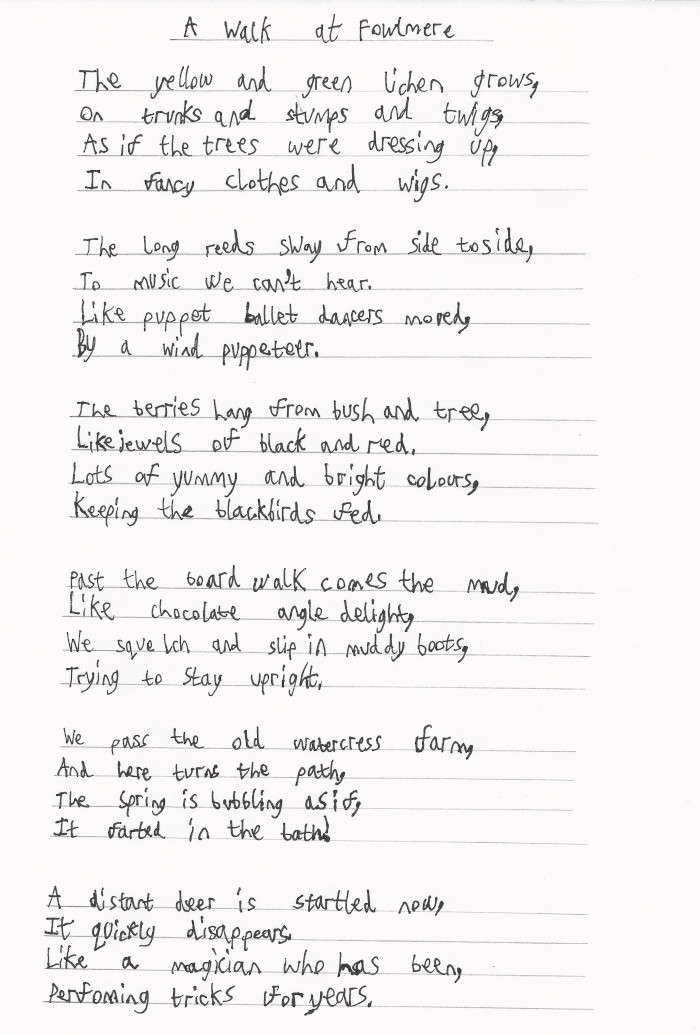 A Walk at Fowlmere
The yellow and green lichen grows,
On trunks and stumps and twigs,
As if the trees were dressing up,
In fancy clothes and wigs.
The long reeds sway from side to side,
To music we can't hear.
Like puppet ballet dancers moved,
By a wind puppeteer.
The berries hang from bush and tree,
Like jewels of black and red.
Lots of yummy and bright colours,
Keeping the blackbirds fed.
Past the board walk comes the mud,
Like chocolate angle delight,
We squelch and slip in muddy boots,
Trying to stay upright.
We pass the old watercress farm,
And here turns the path,
The spring is bubbling as if,
It farted in the bath!
A distant deer is startled now,
It quickly disappears.
Like a magician who has been,
Perfoming tricks for years.